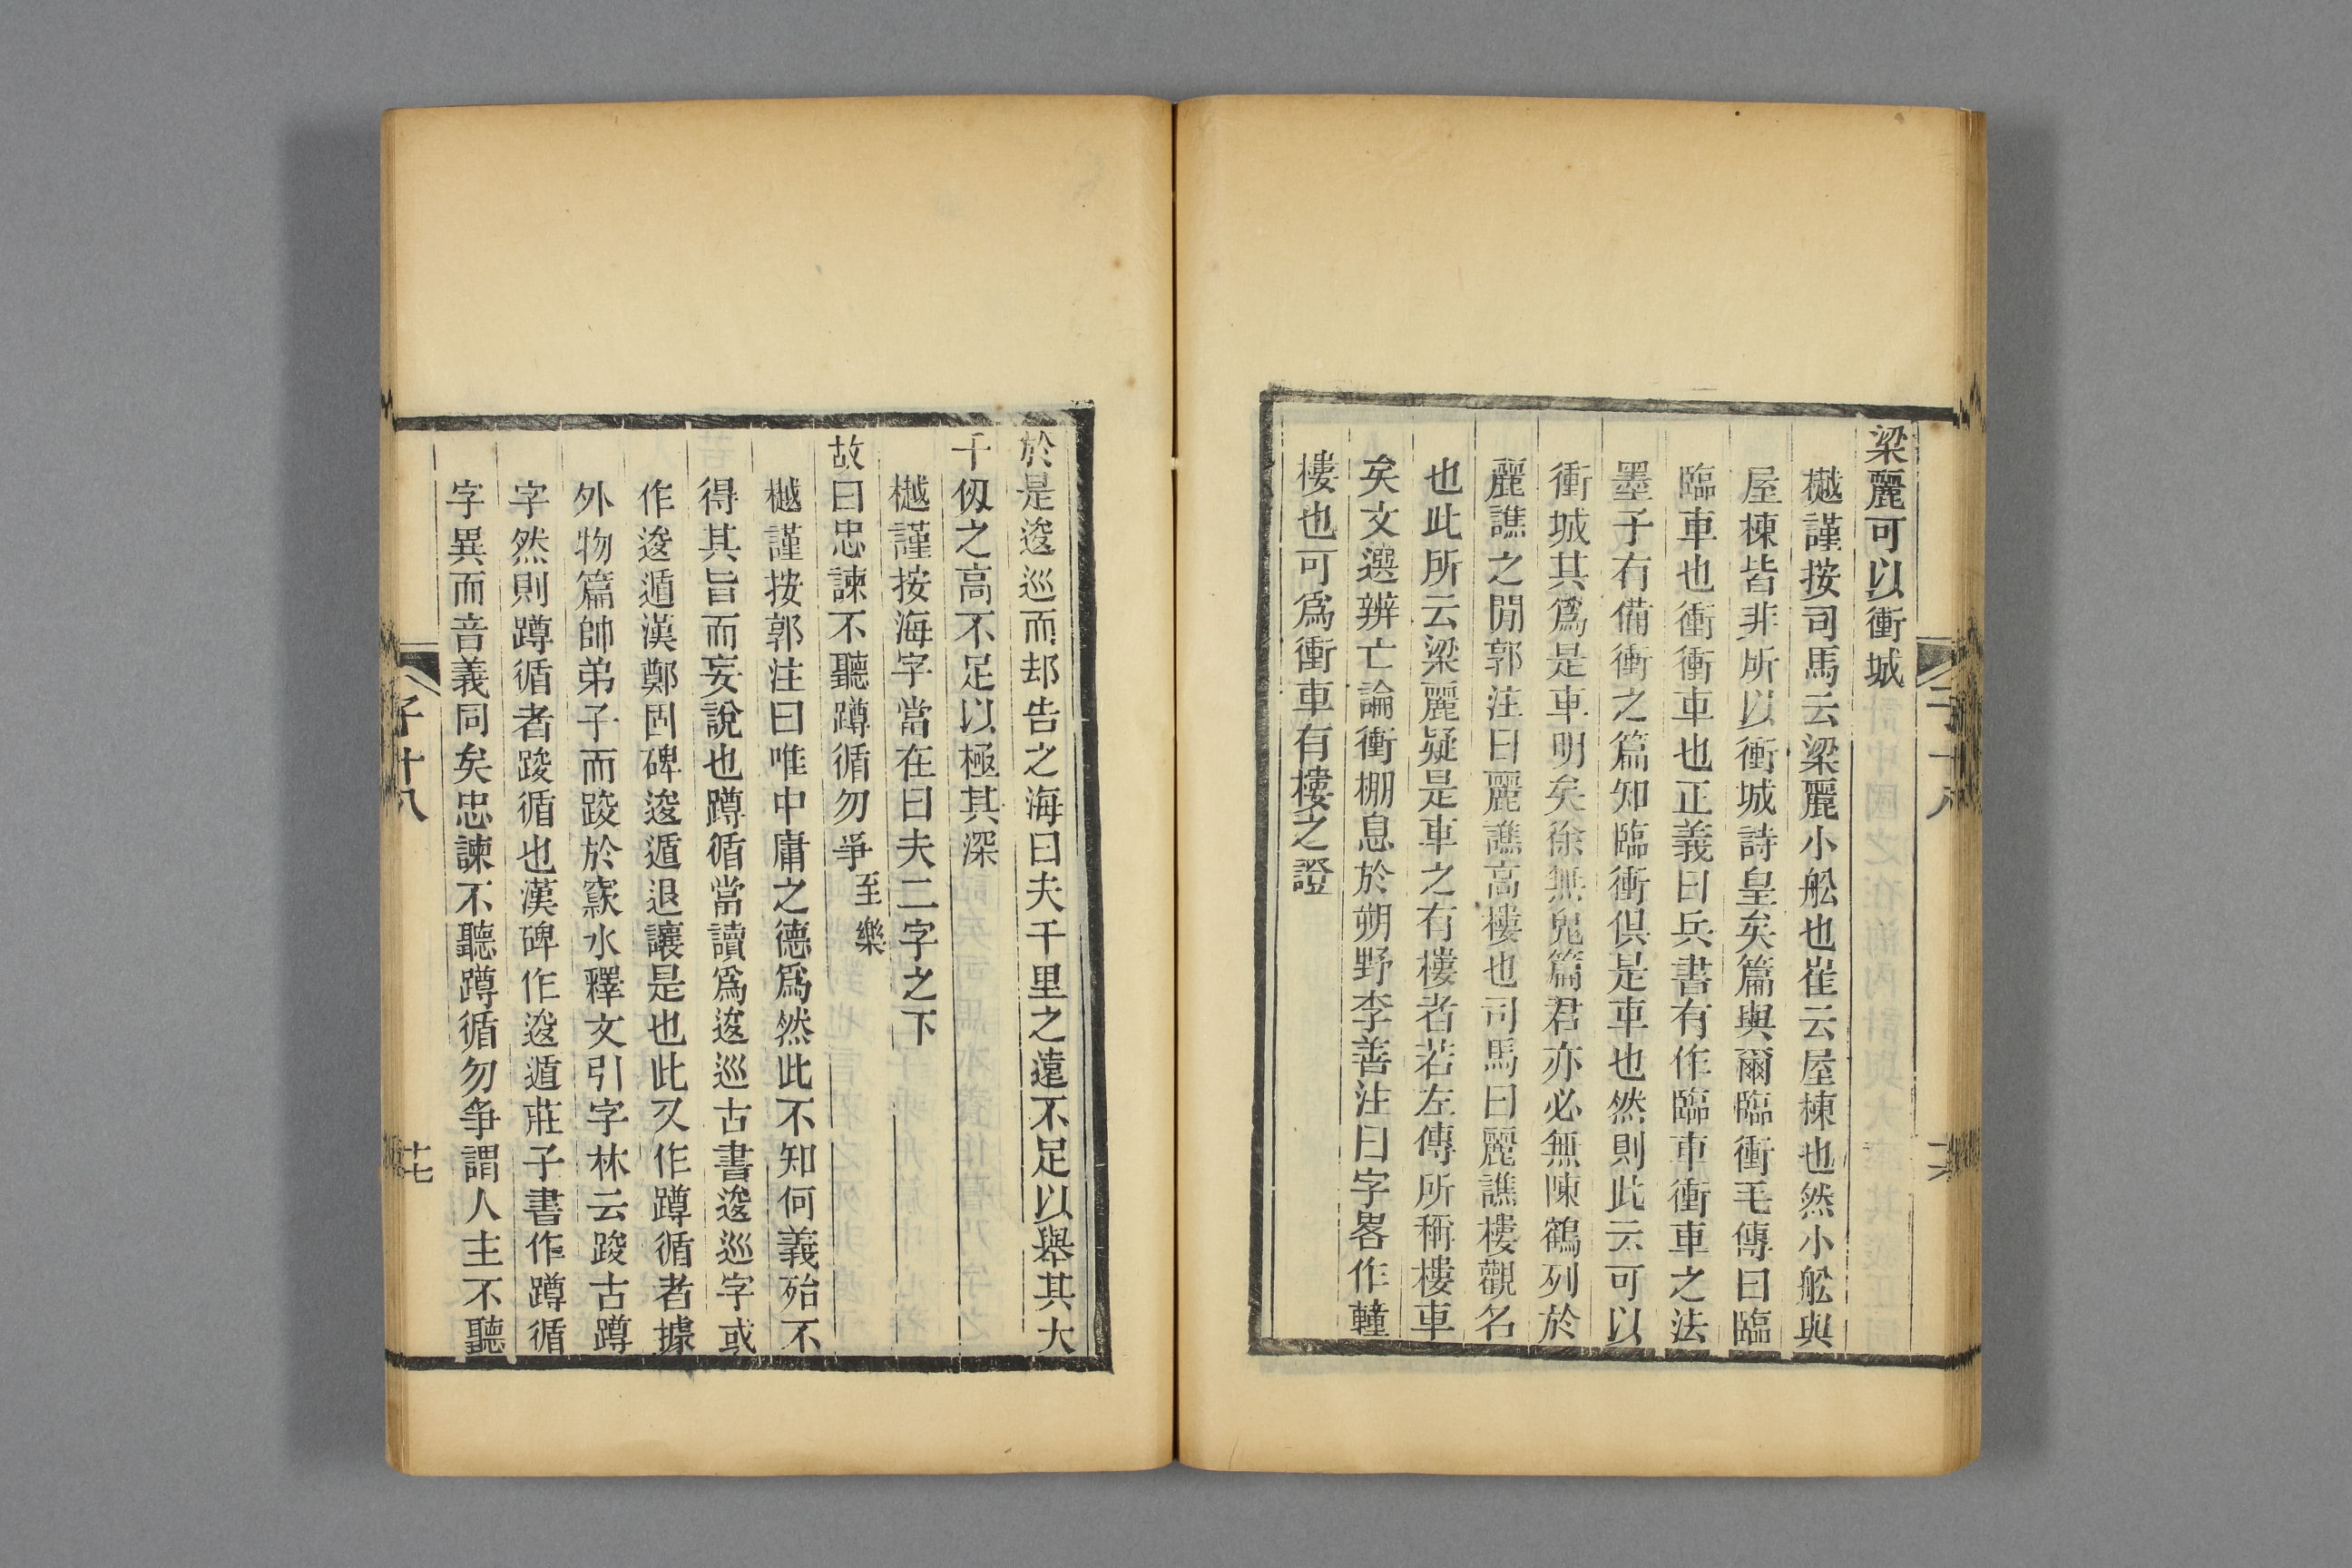 梁麗可以衝城
樾謹按司馬云梁麗小舩也崔云屋棟也然小舩與
屋棟皆非所以衝城詩皇矣篇與爾臨衝毛傳曰臨
臨車也衝衝車也正義曰兵書有作臨車衝車之法
墨子有備衝之篇知臨衝俱是車也然則此云可以
衝城其爲是車明矣徐無鬼篇君亦必無陳鶴列於
麗譙之閒郭注曰麗譙高樓也司馬曰麗譙樓觀名
也此所云梁麗疑是車之有樓者若左傳所稱樓車
矣文選辨亡論衝棚息於朔野李善注曰字畧作轒
樓也可爲衝車有樓之證
於是逡巡而却告之海曰夫千里之遠不足以舉其大
千仭之高不足以極其深
樾謹按海字當在曰夫二字之下
故曰忠諫不聽蹲循勿爭 至樂
樾謹按郭注曰唯中庸之德爲然此不知何義殆不
得其旨而妄說也蹲循當讀爲逡巡古書逡巡字或
作逡遁漢鄭固碑逡遁退讓是也此又作蹲循者據
外物篇帥弟子而踆於窾水釋文引字林云踆古蹲
字然則蹲循者踆循也漢碑作逡遁莊子書作蹲循
字異而音義同矣忠諫不聽蹲循勿爭謂人主不聽
子十八
十七